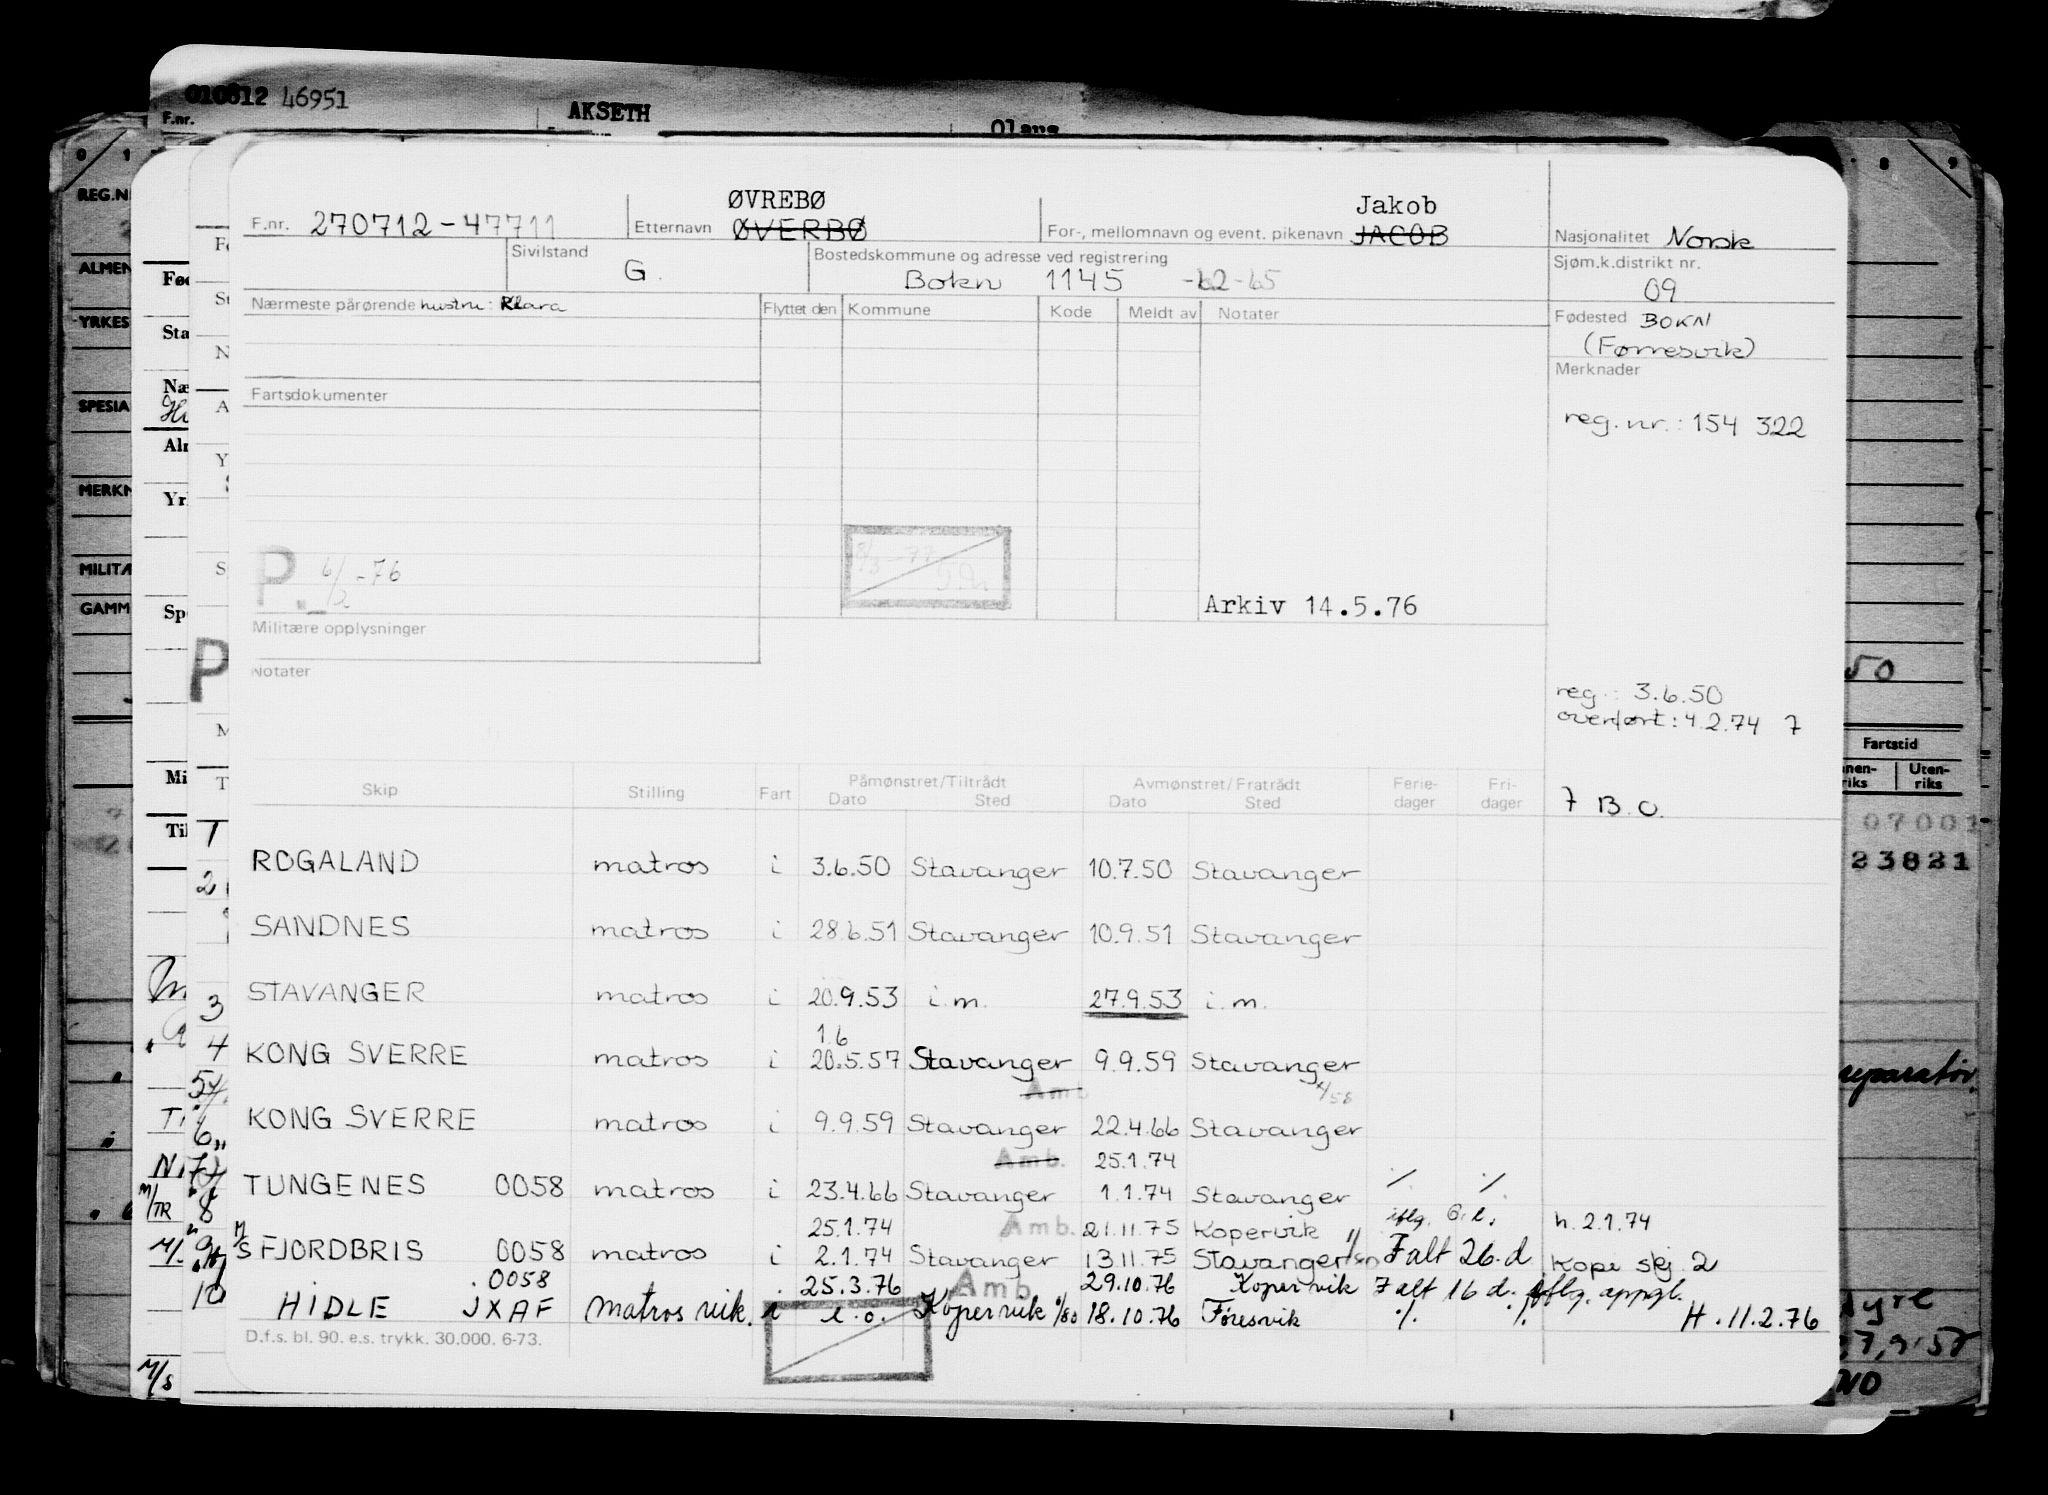 010612 46951
F.nr.
AKSETH
Olaus
REG.N
ALMEN
YRKES
SPESIA
MERKN
MILITÆ
GAMM
Fød
Sta
Næ
Alm
Yr
Spe
Mi
Til
ØVREBØ
Jakob
F.nr. 270712-47711
Etternavn ØVERBØ
For-, mellomnavn og event. pikenavn JACOB
Nasjonalitet Norsk
Sivilstand
G.
Bostedskommune og adresse ved registrering
Bokn 1145 -62-65
Sjøm.k.distrikt nr.
09
Nærmeste pårørende hustru: Klara
Flyttet den Kommune Kode Meldt av Notater
Fødested BOKN
(Førresvik)
Merknader
Fartsdokumenter
reg. nr.: 154 322
P. 6/2 -76
Arkiv 14.5.76
Militære opplysninger
Notater
reg.: 3.6.50
overført: 4.2.74 7
Skip Stilling Fart Påmønstret/Tiltrådt Avmønstret/Fratrådt Ferie-dager Fri-dager
Dato Sted Dato Sted
7 B.O.
ROGALAND matros i 3.6.50 Stavanger 10.7.50 Stavanger
SANDNES matros i 28.6.51 Stavanger 10.9.51 Stavanger
STAVANGER matros i 20.9.53 i.m. 27.9.53 i.m.
1.6
KONG SVERRE matros i 20.5.57 Stavanger 9.9.59 Stavanger
Amb
KONG SVERRE matros i 9.9.59 Stavanger 22.4.66 Stavanger
Amb. 25.1.74
TUNGENES 0058 matros i 23.4.66 Stavanger 1.1.74 Stavanger ./. ./.
25.1.74 Amb. 21.11.75 Kopervik h. 2.1.74
M/S FJORDBRIS 0058 matros i 2.1.74 Stavanger 13.11.75 Stavanger F alt 26.d Kopi skj. 2
0058 25.3.76 Amb 29.10.76 Kopervik F alt 16 d. iflg. oppgl.
HIDLE JXAF Matros vik. i l.o. Kopervik 18.10.76 Føresvik ./. ./. H. 11.2.76
D.f.s. bl. 90. e.s. trykk. 30.000. 6-73.
Fartstid
Uten-
riks
07001
23821